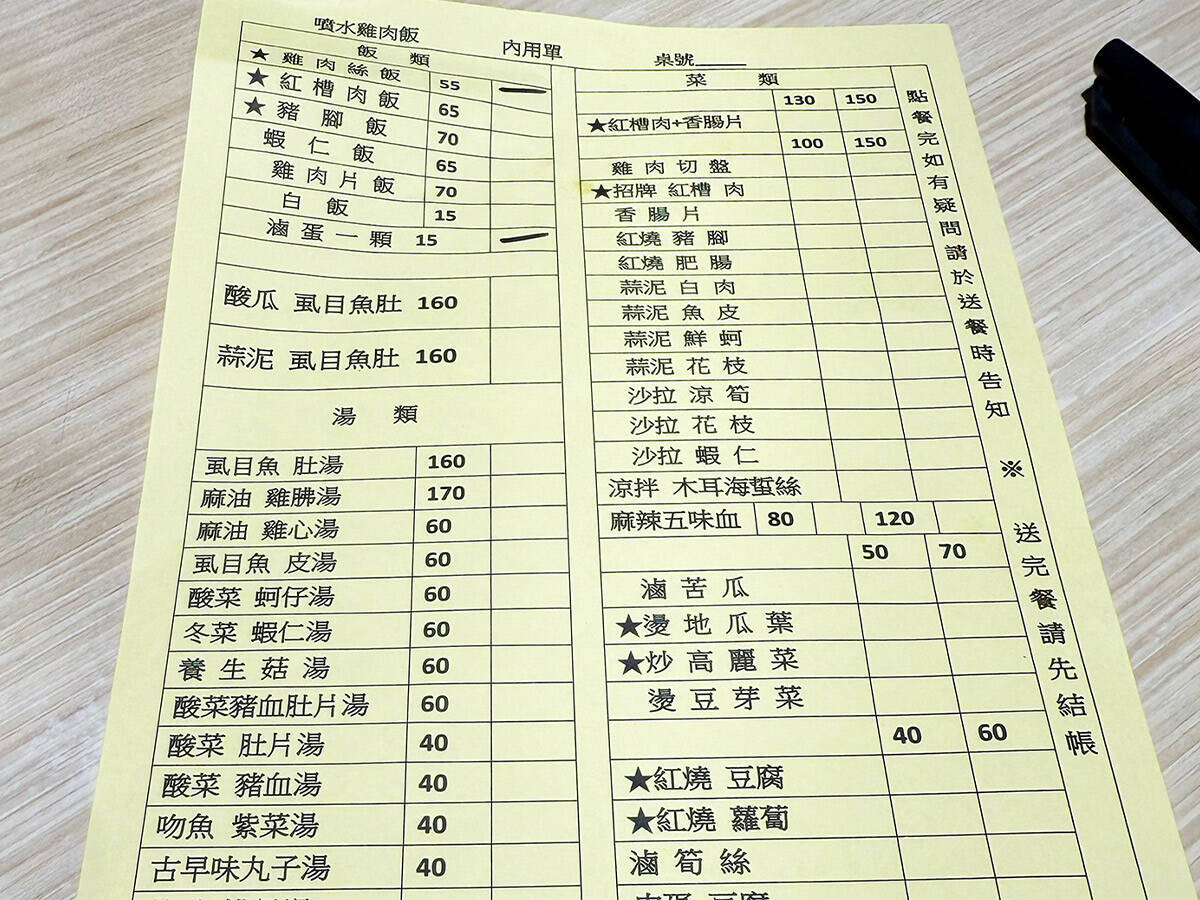 噴水雞肉飯 內用單 桌號
飯 類
★雞肉絲飯 55
★紅槽肉飯 65
★豬腳飯 70
蝦仁飯 65
雞肉片飯 70
白飯 15
滷蛋一顆 15
酸瓜 虱目魚肚 160
蒜泥 虱目魚肚 160
湯 類
虱目魚 肚湯 160
麻油 雞胇湯 170
麻油 雞心湯 60
虱目魚 皮湯 60
酸菜 蚵仔湯 60
冬菜 蝦仁湯 60
養生菇湯 60
酸菜豬血肚片湯 60
酸菜 肚片湯 40
酸菜 豬血湯 40
吻魚 紫菜湯 40
古早味丸子湯 40
菜 類
130 150
★紅槽肉+香腸片
100 150
雞肉切盤
★招牌 紅槽 肉
香腸片
紅燒 豬腳
紅燒 肥腸
蒜泥 白肉
蒜泥 魚皮
蒜泥 鮮蚵
蒜泥 花枝
沙拉 涼筍
沙拉 花枝
沙拉 蝦仁
涼拌 木耳海蜇絲
麻辣五味血 80 120
50 70
滷苦瓜
★燙地瓜葉
★炒高麗菜
燙豆芽菜
40 60
★紅燒 豆腐
★紅燒 蘿蔔
滷筍絲
點餐完如有疑問請於送餐時告知 ※ 送完餐請先結帳